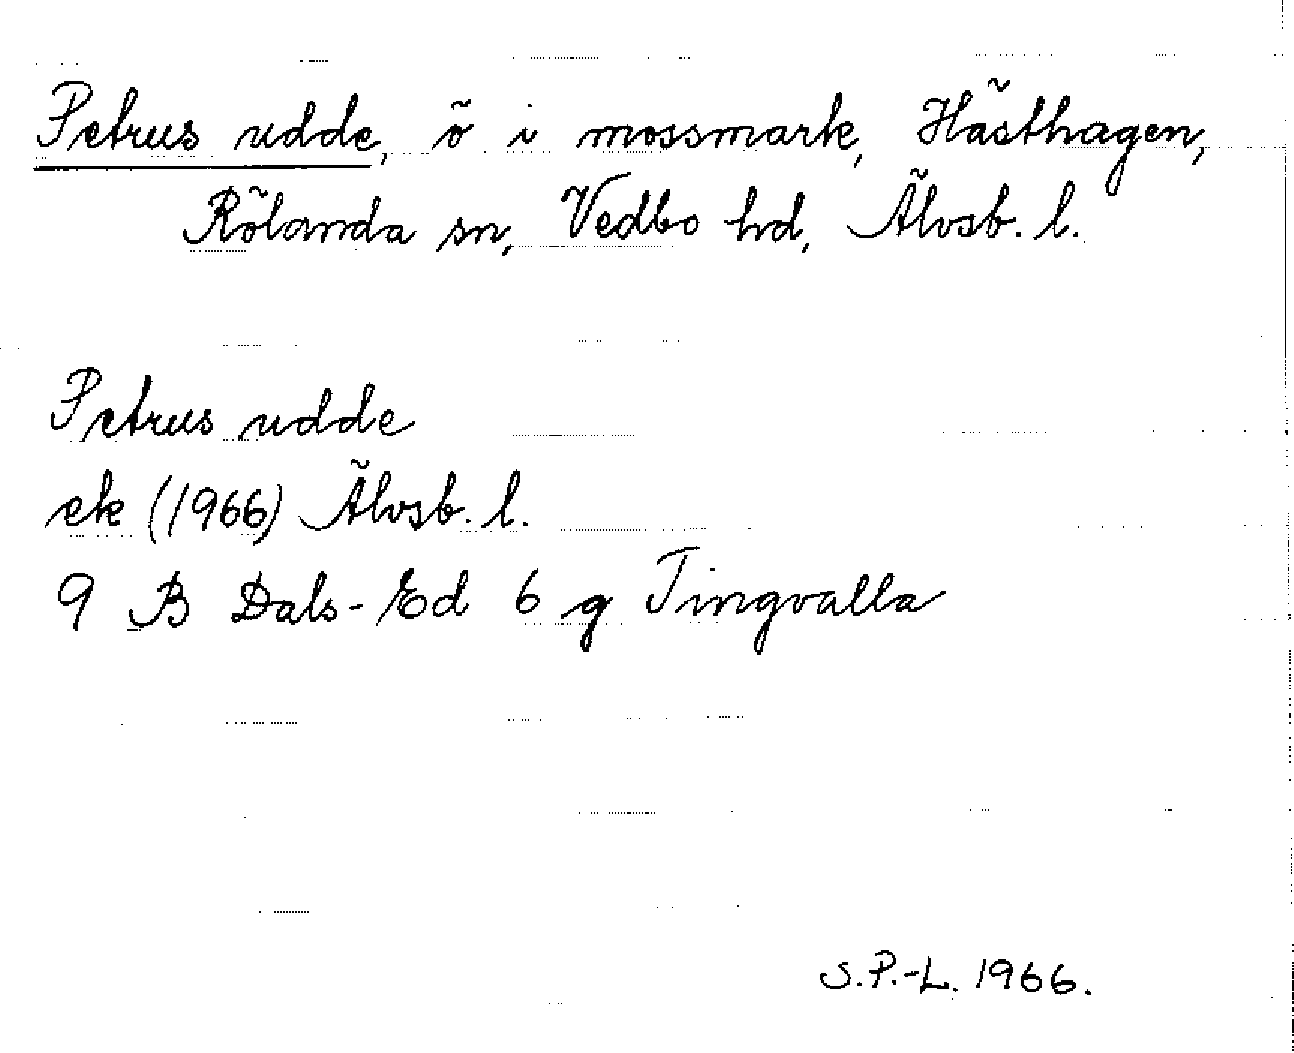 Petrus udde, ö i mossmark, Hästhagen,
Rölanda sn, Vedbo hd, Älvsb. l.
Petrus udde
ek (1966) Älvsb. l.
9 B Dals-Ed 6 g Tingvalla
S.P.-L. 1966.